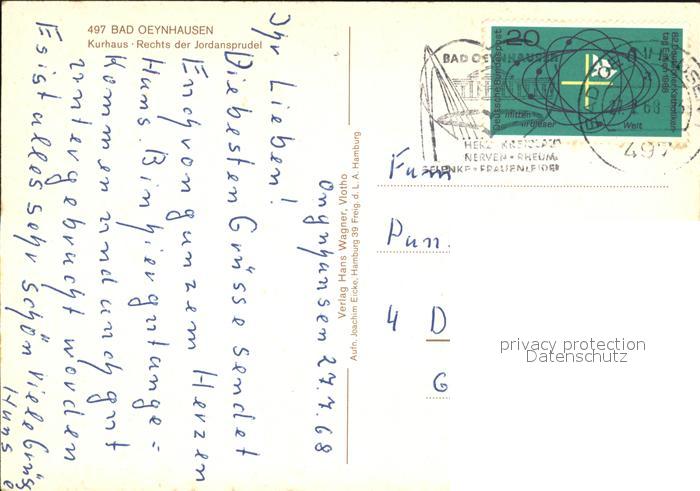 497 BAD OEYNHAUSEN
Kurhaus · Rechts der Jordansprudel
Oeynhausen 27.7.68
Ihr Lieben!
Die besten Grüsse sendet
Euch von ganzem Herzen
Hans. Bin hier gut ange=
kommen und auch gut
untergebracht worden
Es ist alles sehr schön Viele Grüß
Hans
Verlag Hans Wagner, Vlotho
Aufn. Joachim Eicke, Hamburg 39 Freig. d. L. A. Hamburg
Deutsche Bundespost
20
82. Deutscher Katholikentag Essen 1968
mitten in dieser Welt
BAD OEYNHAUSEN
HERZ · KREISLAUF
NERVEN · RHEUMA
GELENKE · FRAUENLEIDEN
497
Fam
4 D
G
privacy protection
Datenschutz